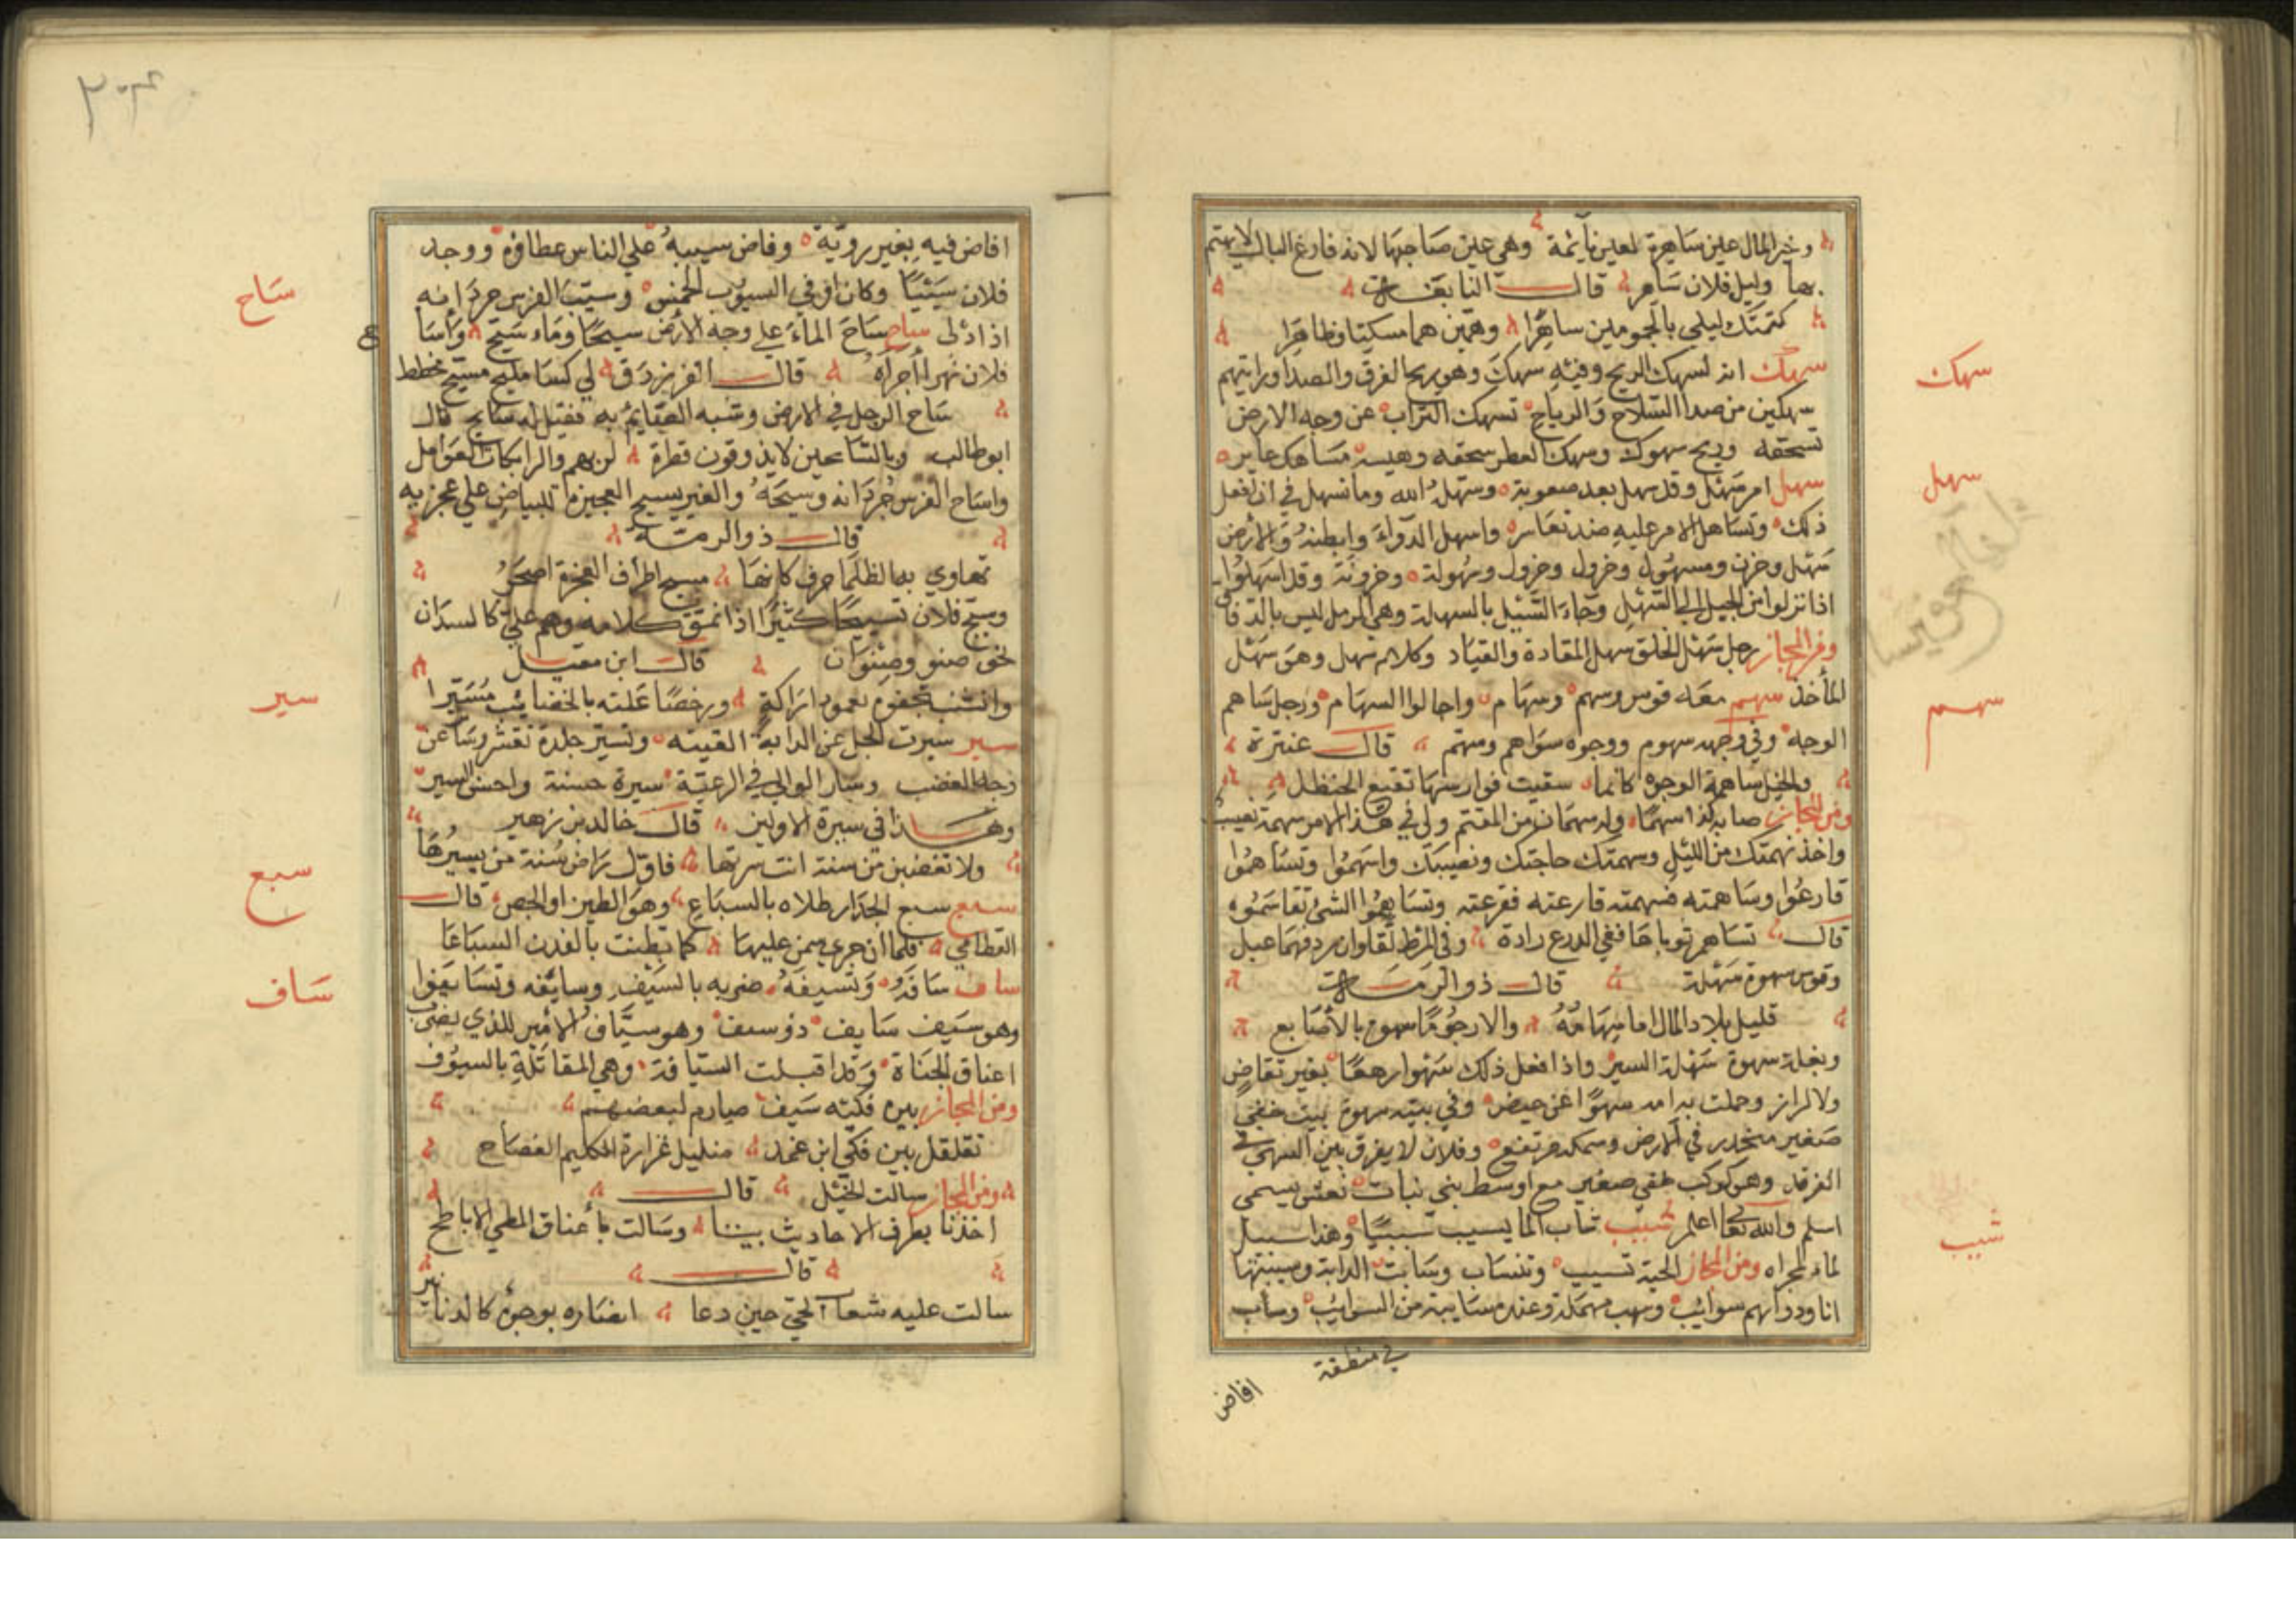 وخير المال عين ساهرة لعين نائمة وهي عين صاحبها لانه فارغ البال لا يهتم
بها وليل فلان ساهر قال النابغة
كتمتك ليلي بالجمومين ساهرا وهمين هما مستكنا وظاهرا
سهك انه لسهك الريح وفيه سهك وهو ريح الغرق والصدا ورايتهم
سهكين من صدا السلاح والرياح تسهك التراب عن وجه الارض
تسحقه وريح سهوك وسهك العطر سحقه وهيسه مساهك عابر
سهل امر سهل وقد سهل بعد صعوبة وسهله الله وما تسهل في ان افعل
ذلك وتساهل الامر عليه ضد تعاسر واسهل الدواء وابطنه والارض
سهل وحزن وسهول وحزول وحزول وسهولة وحزونة وقد اسهلوا
اذا نزلوا من الجبل الي السهل وجاء السيل بالسهلة وهي الرمل ليس بالدقاق
ومن المجاز رجل سهل الخلق سهل المقادة والقياد وكلام سهل وهو سهل
المأخذ سهم معه قوس وسهم وسهام واجالوا السهام ورجل ساهم
الوجه وفي وجهه سهوم ووجوه سواهم وسهم قال عنترة
والخيل ساهمة الوجوه كانما سقيت فوارسها نقيع الحنظل
ومن المجاز صابه كذا سهما وله سهمان من المغنم ولي في هذا الامر سهمة نصيب
واخذ نهمتك من الليل وسهمتك حاجتك ونصيبك واستهموا وتساهموا
قارعوا وساهمته فسهمته قارعته فقرعته وتساهموا الشئ تقاسموه
قال تساهم ثوباها ففي الدرع رادة وفي المرط لفاوان ردفهما عبل
وقوس سهوة سهلة قال ذو الرمة
قليل بلاد المال اما سهامه والارجوما سهوة بالاصابع
وبغلة سهوة سهلة السير واذا فعل ذلك سهوا رهوا بغير تقاض
ولا لزاز وحملت به امه سهوا اعن حيض وفي بيته سهوة بيت خفي
صغير منحدر في الارض وسمكه مرتفع وفلان لا يفرق بين السهي في
الفرقد وهو كوكب خفي صغير مع اوسط بني نبات نعش يسمى
اسلم والله تعا اعلم سيب ساب الما يسيب سيبا وهذا سبيل
لماء لمجراه ومن المجاز الحية تسيب وتنساب وسابت الدابة وسيبتها
انا ودوابهم سوائب وسيب مهملة وعنده سايبة من السوايب وساب
في منطقه
افاض
سهك
سهل
سهم
سيب
افاض فيه بغير روية وفاض سيبه علي الناس عطاؤه ووجد
فلان سيبا وكان اوفي السيوب الخمس وسيب الفرس جردانه
اذا ادلى ساح ساح الماء علي وجه الارض سيحا وماء سيح واسا
فلان نهرا اجراه قال الفرزدق لي كسا مليح مسيح مخطط
ساح الرجل في الارض وشبه الصائم به فقيل له سايح قال
ابو طالب وبالسائحين لا يذوقون قطرة لربهم والراتكات العوامل
واساح الفرس جردانه وسيحه والعير يسيح العجيزة للبياض علي عجزيه
قال ذو الرمة
تهاوي بي الظلما حرف كانها مسيح اطراف العجيزة اصحر
وسيح فلان تسييحا كثيرا اذا نمق كلامه وهم علي كالسدان
نحو صنو وصنوان قال ابن مقبل
سير سيرت الجل عن الدابة القيته وتسير جلده تقشر وسا عن
وجهه الغضب وسار الوالي في الرعية سيرة حسنة واحسن السير
وهذا في سيرة الاولين قال خالد بن زهير
ولا تغضبن من سنة انت سرتها فاول راض سنة من يسيرها
سيع سيع الجدار طلاه بالسياع وهو الطين او الجص قال
القطامي فلما ان جري سمن عليها كما بطنت بالفدن السياعا
ساف سافه وتسيفه ضربه بالسيف وسايفه وتسايفوا
وهو سيف سايف ذو سيف وهو سياف الامير للذي يضرب
اعناق الجناة وقد اقبلت السيافة وهي المقاتلة بالسيوف
ومن المجاز بين فكيه سيف صارم لبعضهم
تقلقل بين فكي ابن غمد
ومن المجاز سالت الخيل قال
اخذنا بطرف الاحاديث بيننا وسالت باعناق المطي الاباطح
قال
سالت عليه شعاب الحي حين دعا انصاره بوجوه كالدنانير
ساح
سير
سيع
ساف